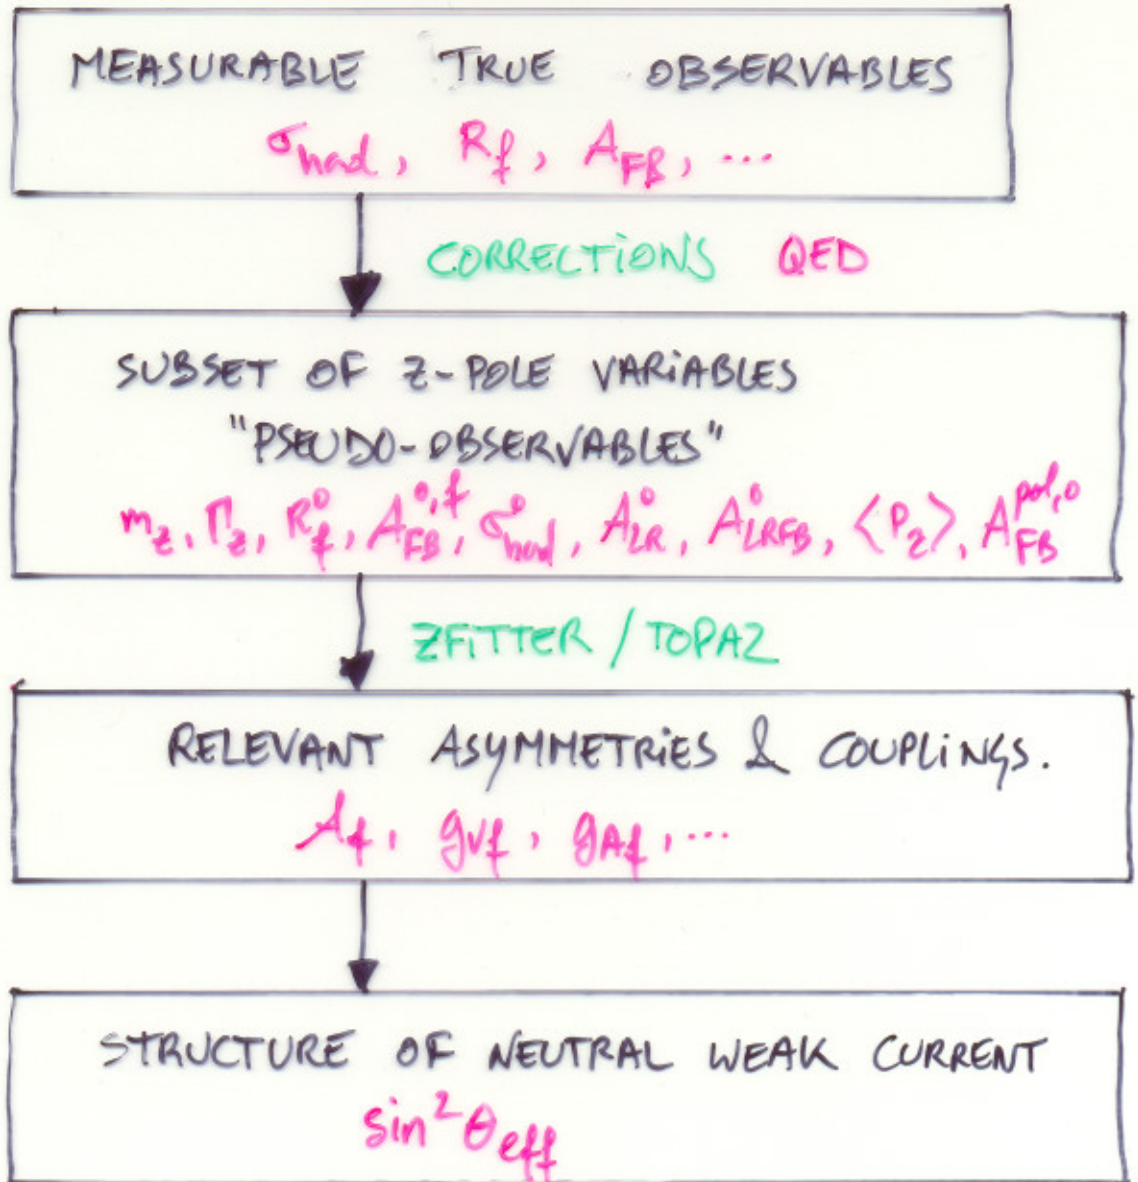 MEASURABLE TRUE OBSERVABLES
σ_had, R_f, A_FB, ...
CORRECTIONS QED
SUBSET OF Z-POLE VARIABLES
"PSEUDO-OBSERVABLES"
m_Z, Γ_Z, R_f^0, A_FB^0,f, σ_had^0, A_LR^0, A_LRFB^0, <P_2>, A_FB^pol,0
ZFITTER / TOPAZ
RELEVANT ASYMMETRIES & COUPLINGS.
A_f, g_Vf, g_Af, ...
STRUCTURE OF NEUTRAL WEAK CURRENT
sin^2 θ_eff